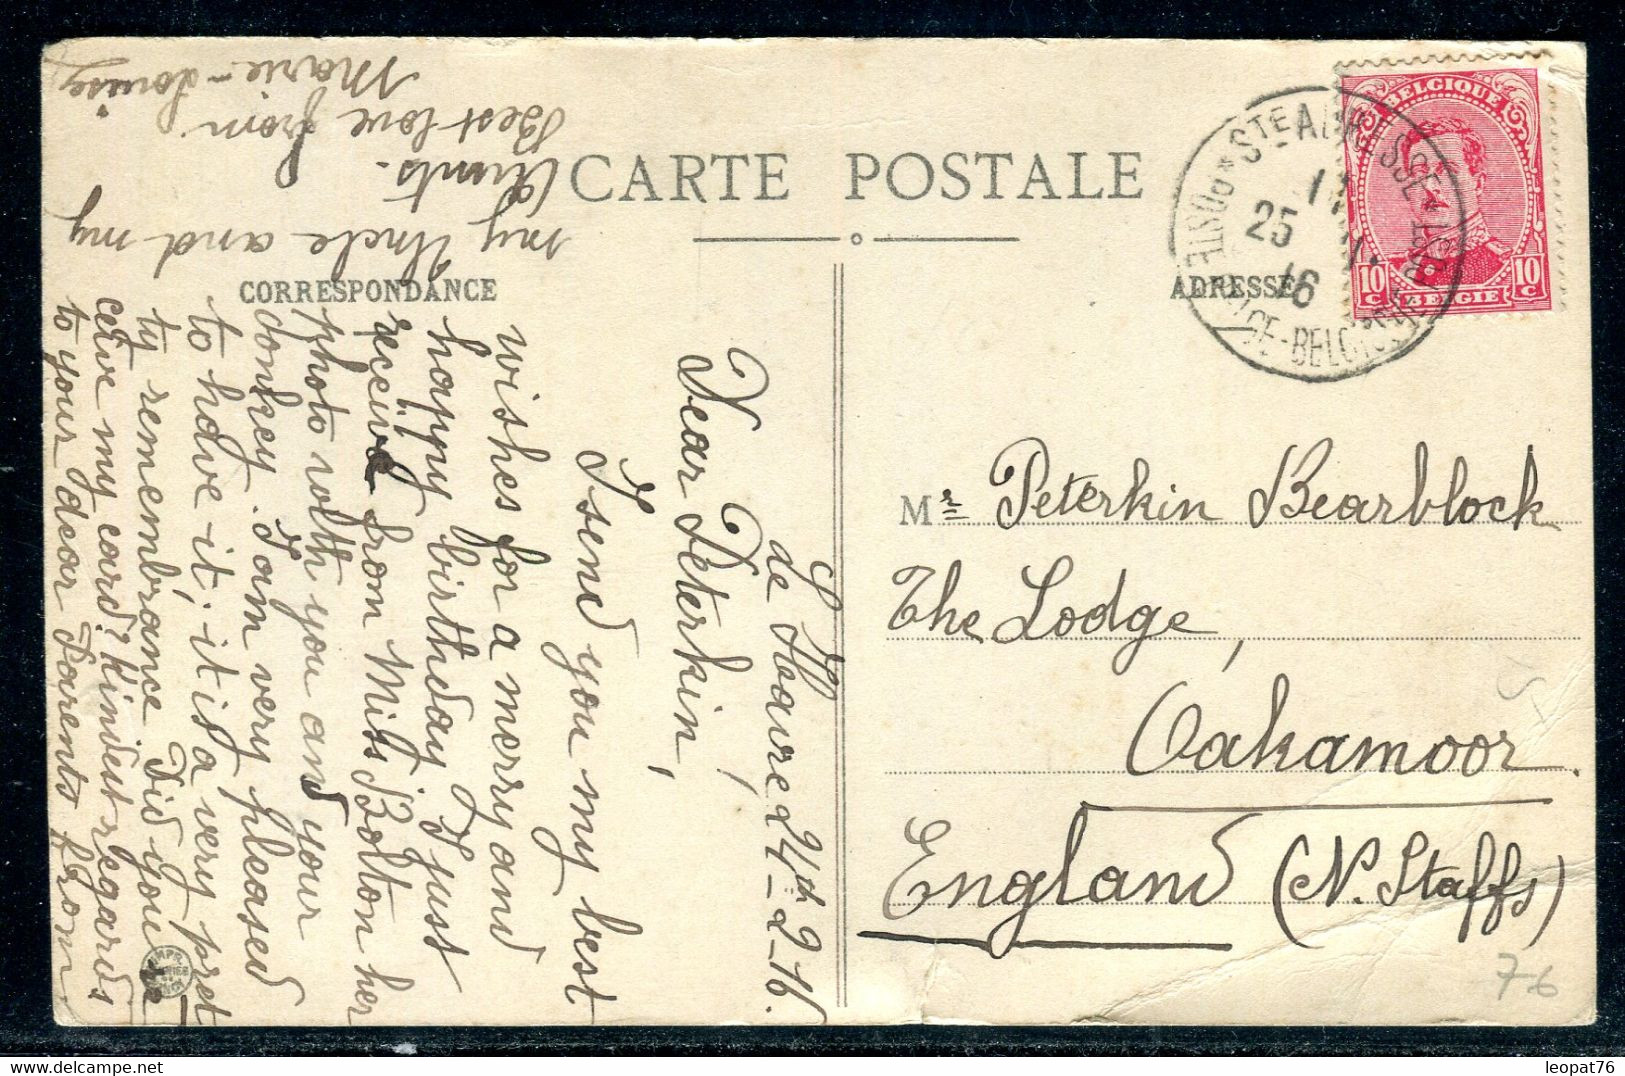 CARTE POSTALE
CORRESPONDANCE
ADRESSE
Le Havre, 24th-2-16.
Dear Peterkin,
I send you my best
wishes for a merry and
happy birthday. I just
receive from Miss Bolton her
photo with you and your
donkey. I am very pleased
to have it; it is a very pret
ty remembrance. Did you re
ceive my card? Kindest regards
to your dear Parents from
my Uncle and my
Aunts.
Best love from
Marie-Louise
Mr Peterkin Bearblock
The Lodge,
Oakamoor.
England (N. Staffs)
BELGIQUE
10 c BELGIË 10 c
STE ADRESSE
25
16
76
leopat76